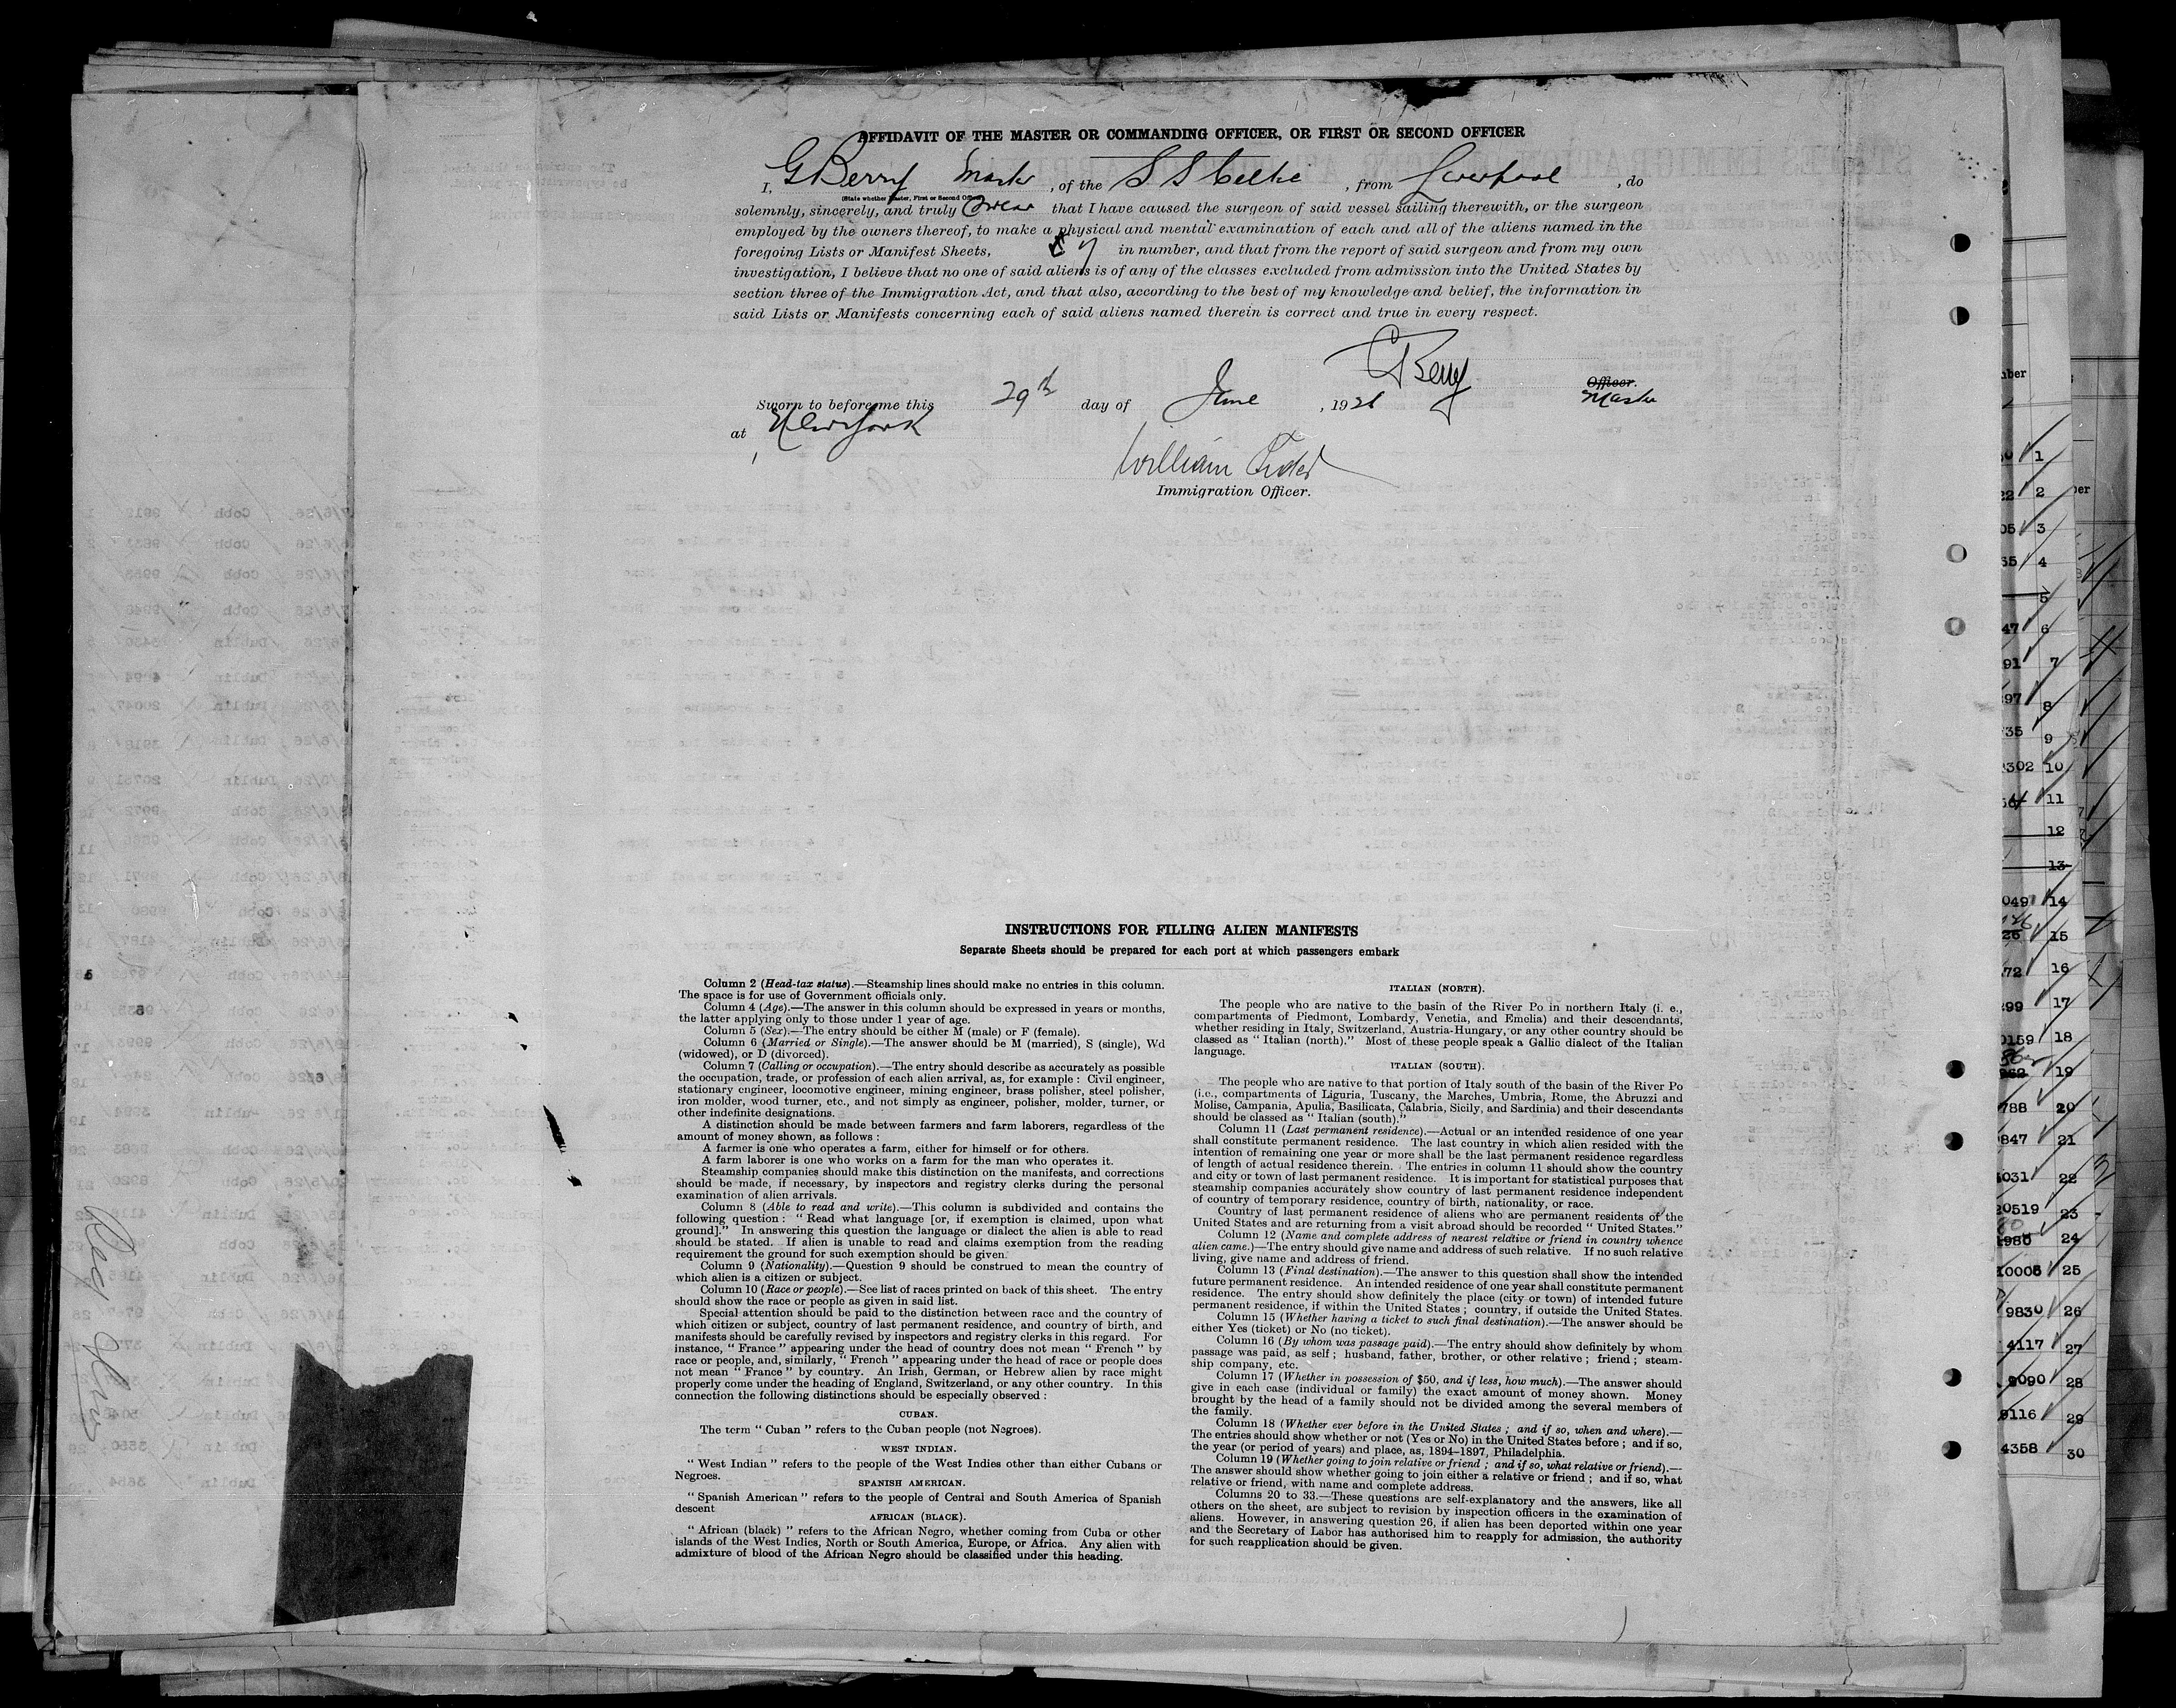 AFFIDAVIT OF THE MASTER OR COMMANDING OFFICER, OR FIRST OR SECOND OFFICER
I, G Berry Master, of the S S Celtic, from Liverpool, do
(State whether Master, First or Second Officer)
solemnly, sincerely, and truly swear that I have caused the surgeon of said vessel sailing therewith, or the surgeon
employed by the owners thereof, to make a physical and mental examination of each and all of the aliens named in the
foregoing Lists or Manifest Sheets, in number, and that from the report of said surgeon and from my own
investigation, I believe that no one of said aliens is of any of the classes excluded from admission into the United States by
section three of the Immigration Act, and that also, according to the best of my knowledge and belief, the information in
said Lists or Manifests concerning each of said aliens named therein is correct and true in every respect.
G Berry
Officer.
Master
Sworn to before me this 29th day of June, 1926
at New York
William
Immigration Officer.
INSTRUCTIONS FOR FILLING ALIEN MANIFESTS
Separate Sheets should be prepared for each port at which passengers embark
Column 2 (Head-tax status).—Steamship lines should make no entries in this column.
The space is for use of Government officials only.
Column 4 (Age).—The answer in this column should be expressed in years or months,
the latter applying only to those under 1 year of age.
Column 5 (Sex).—The entry should be either M (male) or F (female).
Column 6 (Married or Single).—The answer should be M (married), S (single), Wd
(widowed), or D (divorced).
Column 7 (Calling or occupation).—The entry should describe as accurately as possible
the occupation, trade, or profession of each alien arrival, as, for example : Civil engineer,
stationary engineer, locomotive engineer, mining engineer, brass polisher, steel polisher,
iron molder, wood turner, etc., and not simply as engineer, polisher, molder, turner, or
other indefinite designations.
A distinction should be made between farmers and farm laborers, regardless of the
amount of money shown, as follows :
A farmer is one who operates a farm, either for himself or for others.
A farm laborer is one who works on a farm for the man who operates it.
Steamship companies should make this distinction on the manifests, and corrections
should be made, if necessary, by inspectors and registry clerks during the personal
examination of alien arrivals.
Column 8 (Able to read and write).—This column is subdivided and contains the
following question : " Read what language [or, if exemption is claimed, upon what
ground]." In answering this question the language or dialect the alien is able to read
should be stated. If alien is unable to read and claims exemption from the reading
requirement the ground for such exemption should be given.
Column 9 (Nationality).—Question 9 should be construed to mean the country of
which alien is a citizen or subject.
Column 10 (Race or people).—See list of races printed on back of this sheet. The entry
should show the race or people as given in said list.
Special attention should be paid to the distinction between race and the country of
which citizen or subject, country of last permanent residence, and country of birth, and
manifests should be carefully revised by inspectors and registry clerks in this regard. For
instance, " France " appearing under the head of country does not mean " French " by
race or people, and, similarly, " French " appearing under the head of race or people does
not mean " France " by country. An Irish, German, or Hebrew alien by race might
properly come under the heading of England, Switzerland, or any other country. In this
connection the following distinctions should be especially observed :
CUBAN.
The term " Cuban " refers to the Cuban people (not Negroes).
WEST INDIAN.
" West Indian " refers to the people of the West Indies other than either Cubans or
Negroes.
SPANISH AMERICAN.
" Spanish American " refers to the people of Central and South America of Spanish
descent
AFRICAN (BLACK).
" African (black) " refers to the African Negro, whether coming from Cuba or other
islands of the West Indies, North or South America, Europe, or Africa. Any alien with
admixture of blood of the African Negro should be classified under this heading.
ITALIAN (NORTH).
The people who are native to the basin of the River Po in northern Italy (i. e.,
compartments of Piedmont, Lombardy, Venetia, and Emelia) and their descendants,
whether residing in Italy, Switzerland, Austria-Hungary, or any other country should be
classed as " Italian (north)." Most of these people speak a Gallic dialect of the Italian
language.
ITALIAN (SOUTH).
The people who are native to that portion of Italy south of the basin of the River Po
(i.e., compartments of Liguria, Tuscany, the Marches, Umbria, Rome, the Abruzzi and
Molise, Campania, Apulia, Basilicata, Calabria, Sicily, and Sardinia) and their descendants
should be classed as " Italian (south)."
Column 11 (Last permanent residence).—Actual or an intended residence of one year
shall constitute permanent residence. The last country in which alien resided with the
intention of remaining one year or more shall be the last permanent residence regardless
of length of actual residence therein. The entries in column 11 should show the country
and city or town of last permanent residence. It is important for statistical purposes that
steamship companies accurately show country of last permanent residence independent
of country of temporary residence, country of birth, nationality, or race.
Country of last permanent residence of aliens who are permanent residents of the
United States and are returning from a visit abroad should be recorded " United States."
Column 12 (Name and complete address of nearest relative or friend in country whence
alien came.)—The entry should give name and address of such relative. If no such relative
living, give name and address of friend.
Column 13 (Final destination).—The answer to this question shall show the intended
future permanent residence. An intended residence of one year shall constitute permanent
residence. The entry should show definitely the place (city or town) of intended future
permanent residence, if within the United States ; country, if outside the United States.
Column 15 (Whether having a ticket to such final destination).—The answer should be
either Yes (ticket) or No (no ticket).
Column 16 (By whom was passage paid).—The entry should show definitely by whom
passage was paid, as self ; husband, father, brother, or other relative ; friend ; steam-
ship company, etc.
Column 17 (Whether in possession of $50, and if less, how much).—The answer should
give in each case (individual or family) the exact amount of money shown. Money
brought by the head of a family should not be divided among the several members of
the family.
Column 18 (Whether ever before in the United States ; and if so, when and where).—
The entries should show whether or not (Yes or No) in the United States before ; and if so,
the year (or period of years) and place, as, 1894-1897, Philadelphia.
Column 19 (Whether going to join relative or friend ; and if so, what relative or friend).—
The answer should show whether going to join either a relative or friend ; and if so, what
relative or friend, with name and complete address.
Columns 20 to 33.—These questions are self-explanatory and the answers, like all
others on the sheet, are subject to revision by inspection officers in the examination of
aliens. However, in answering question 26, if alien has been deported within one year
and the Secretary of Labor has authorised him to reapply for admission, the authority
for such reapplication should be given.
1
2
3
4
5
6
7
8
9
10
11
12
13
14
15
16
17
18
19
20
21
22
23
24
10006 25
9830 26
4117 27
9090 28
9116 29
4358 30